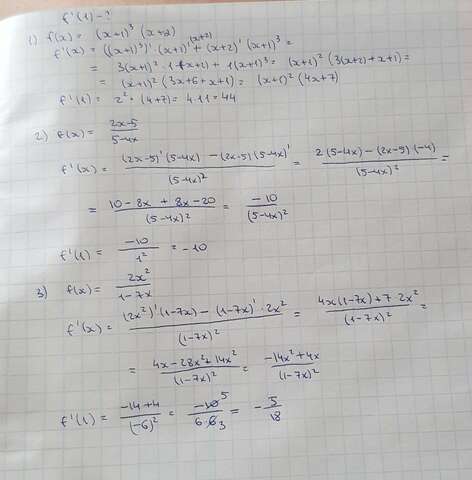 f'(1) - ?
1) f(x) = (x+1)³ (x+2)
f'(x) = ((x+1)³)' · (x+1)' (x+2) + (x+2)' (x+1)³ =
= 3(x+1)² · 1 · (x+2) + 1 (x+1)³ = (x+1)² (3(x+2) + x+1) =
= (x+1)² (3x+6+x+1) = (x+1)² (4x+7)
f'(1) = 2² · (4+7) = 4·11 = 44
2) f(x) = (2x-5)/(5-4x)
f'(x) = ((2x-5)'(5-4x) - (2x-5)(5-4x)')/(5-4x)² = (2(5-4x) - (2x-5)(-4))/(5-4x)² =
= (10-8x + 8x-20)/(5-4x)² = (-10)/(5-4x)²
f'(1) = (-10)/1² = -10
3) f(x) = 2x²/(1-7x)
f'(x) = ((2x²)'(1-7x) - (1-7x)' · 2x²)/(1-7x)² = (4x(1-7x) + 7·2x²)/(1-7x)² =
= (4x-28x²+14x²)/(1-7x)² = (-14x²+4x)/(1-7x)²
f'(1) = (-14+4)/(-6)² = (-10 5)/(6·6 3) = -5/18